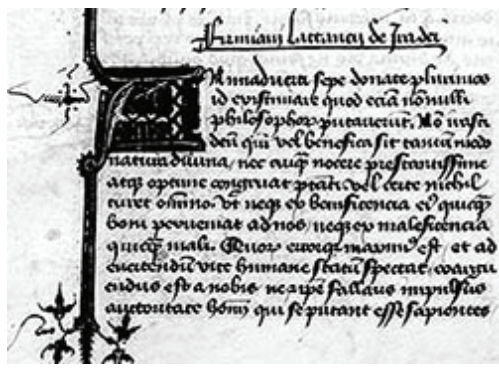 Firmiani lactancii de ira dei
Animadverti sepe donate plurimos
id existimare quod eciam nonnulli
philosophorum putaverunt. Non irasci
deum quum vel benefica sit tantum modo
natura divina, nec cuiquam nocere prestantissime
atque optime congruat potestati vel certe nichil
curet omnino. Ut neque ex beneficencia eius quicquam
boni perveniat ad nos, neque ex maleficencia
quicquam mali. Quorum error quia maximus est et ad
evertendum vite humane statum spectat coarguendus
est a nobis ne ipse fallaris impulsus
auctoritate hominum qui se putant esse sapientes